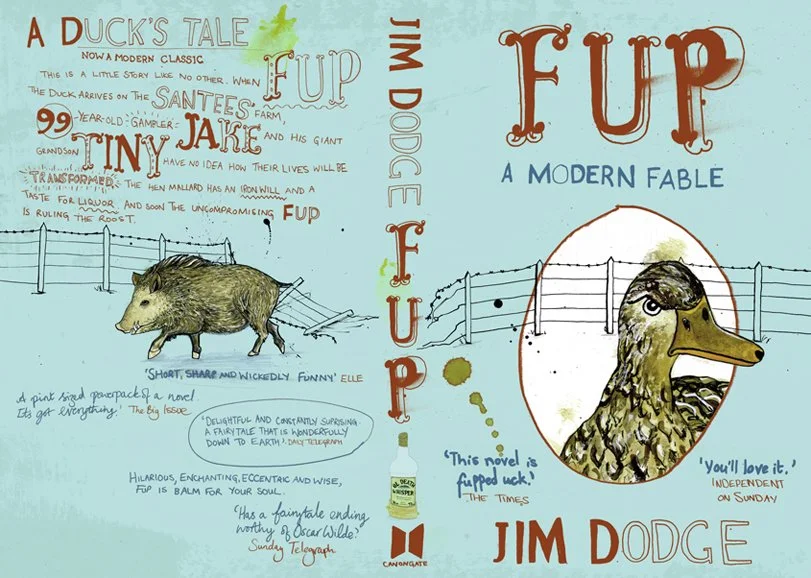 A DUCK'S TALE
NOW A MODERN CLASSIC
THIS IS A LITTLE STORY LIKE NO OTHER. WHEN FUP
THE DUCK ARRIVES ON THE SANTEES' FARM,
99 YEAR-OLD GAMBLER JAKE AND HIS GIANT
GRANDSON TINY HAVE NO IDEA HOW THEIR LIVES WILL BE
TRANSFORMED. THE HEN MALLARD HAS AN IRON WILL AND A
TASTE FOR LIQUOR AND SOON THE UNCOMPROMISING FUP
IS RULING THE ROOST.
'SHORT, SHARP AND WICKEDLY FUNNY' ELLE
A pint sized powerpack of a novel
It's got everything.' The Big Issue
'DELIGHTFUL AND CONSTANTLY SUPRISING.
A FAIRYTALE THAT IS WONDERFULLY
DOWN TO EARTH'. DAILY TELEGRAPH
HILARIOUS, ENCHANTING, ECCENTRIC AND WISE,
FUP IS BALM FOR YOUR SOUL.
'Has a fairytale ending
worthy of Oscar Wilde.'
Sunday Telegraph
JIM DODGE FUP
DEATH
WHISPER
CANONGATE
FUP
A MODERN FABLE
'This novel is
fupped uck.'
THE TIMES
'You'll love it.'
INDEPENDENT
ON SUNDAY
JIM DODGE